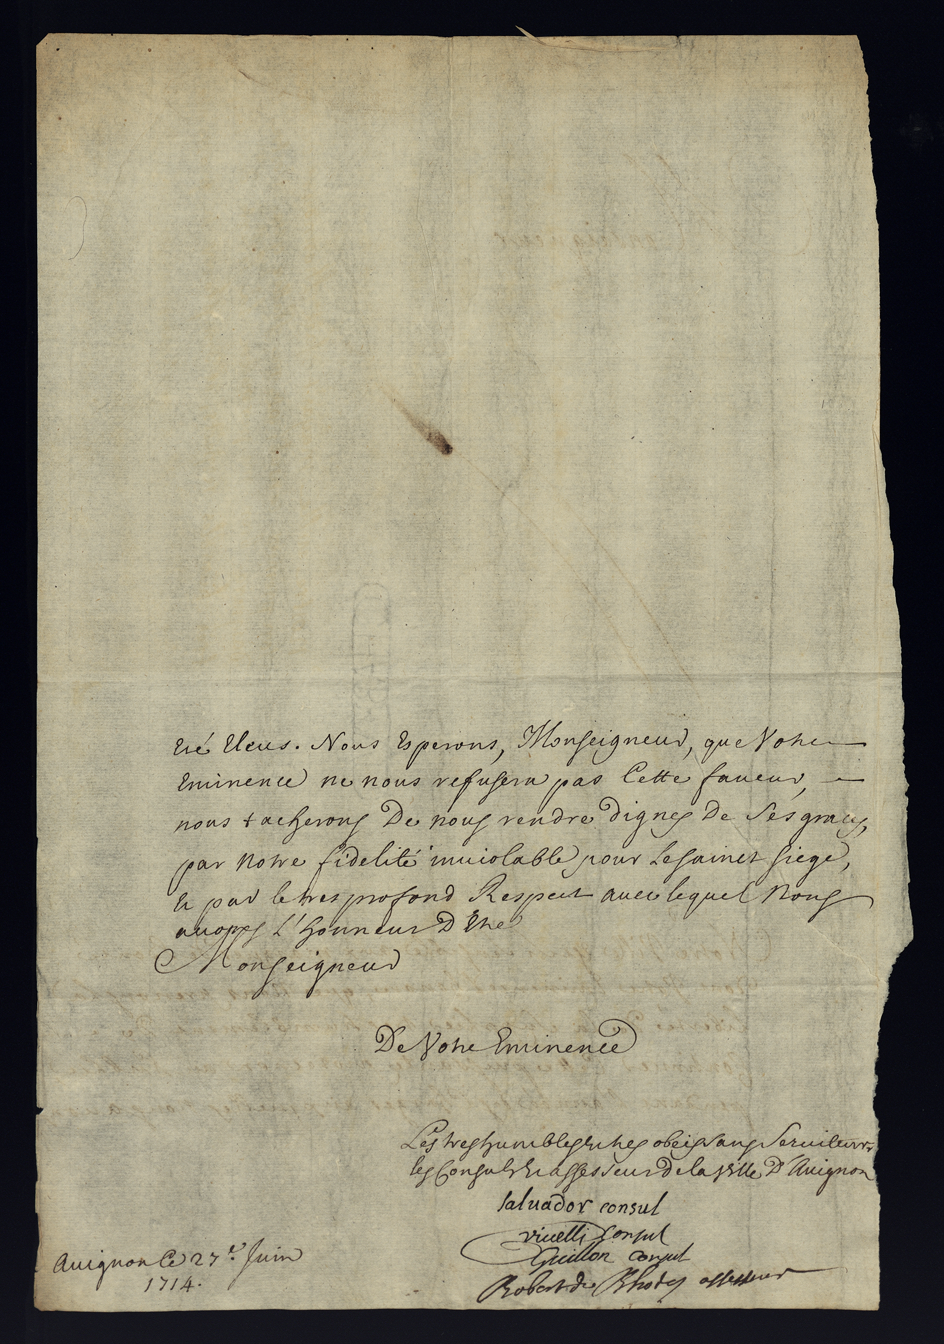 eté Eleus. Nous Esperons, Monseigneur, que Votre
Eminence ne nous refusera pas Cette faueur,
nous tacherons De nous rendre dignes De Ses graces,
par notre fidelité inuiolable pour Le saint siege,
Et par le tres profond Respect auec lequel Nous
auons L'honneur D'Etre
Monseigneur
De Votre Eminence
Les tres humbles et tres obeissans Seruiteurs
les Consuls Et assesseur de la Ville D'Auignon
saluador consul
consul
Guillon consul
Robert de Rhodes assesseur
Auignon Ce 27.e Juin
1714.